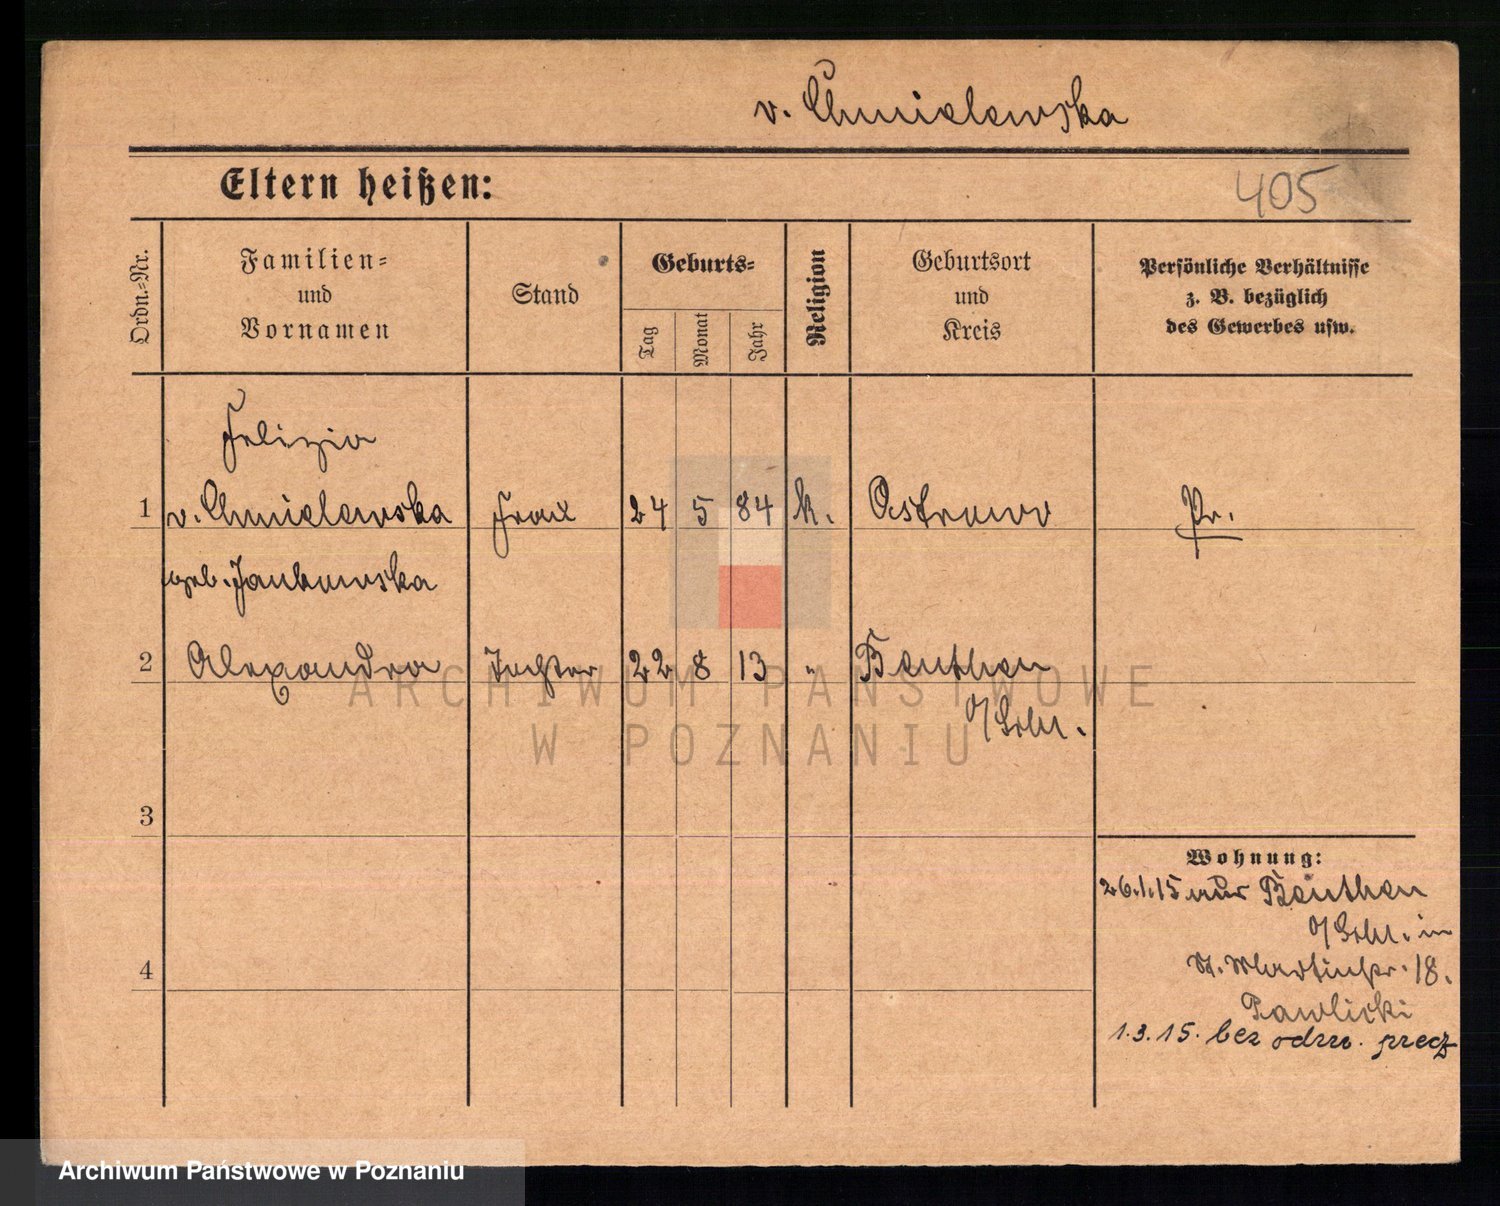 v. Chmielewska
Eltern heißen:
405
Ordn.-Nr.
Familien-
und
Vornamen
Stand
Geburts-
Tag
Monat
Jahr
Religion
Geburtsort
und
Kreis
Persönliche Verhältnisse
z. B. bezüglich
des Gewerbes usw.
Felizia
1 v. Chmielewska Frau 24 5 84 k. Ostrowo Pr.
geb.
2 Alexandra Tochter 22 8 13 " Beuthen
O/Schl.
3
Wohnung:
26.1.15 aus Beuthen
O/Schl. in
St. Martinstr. 18.
4
Pawlicki
1.3.15. bez odm. precz
ARCHIWUM PAŃSTWOWE
W POZNANIU
Archiwum Państwowe w Poznaniu